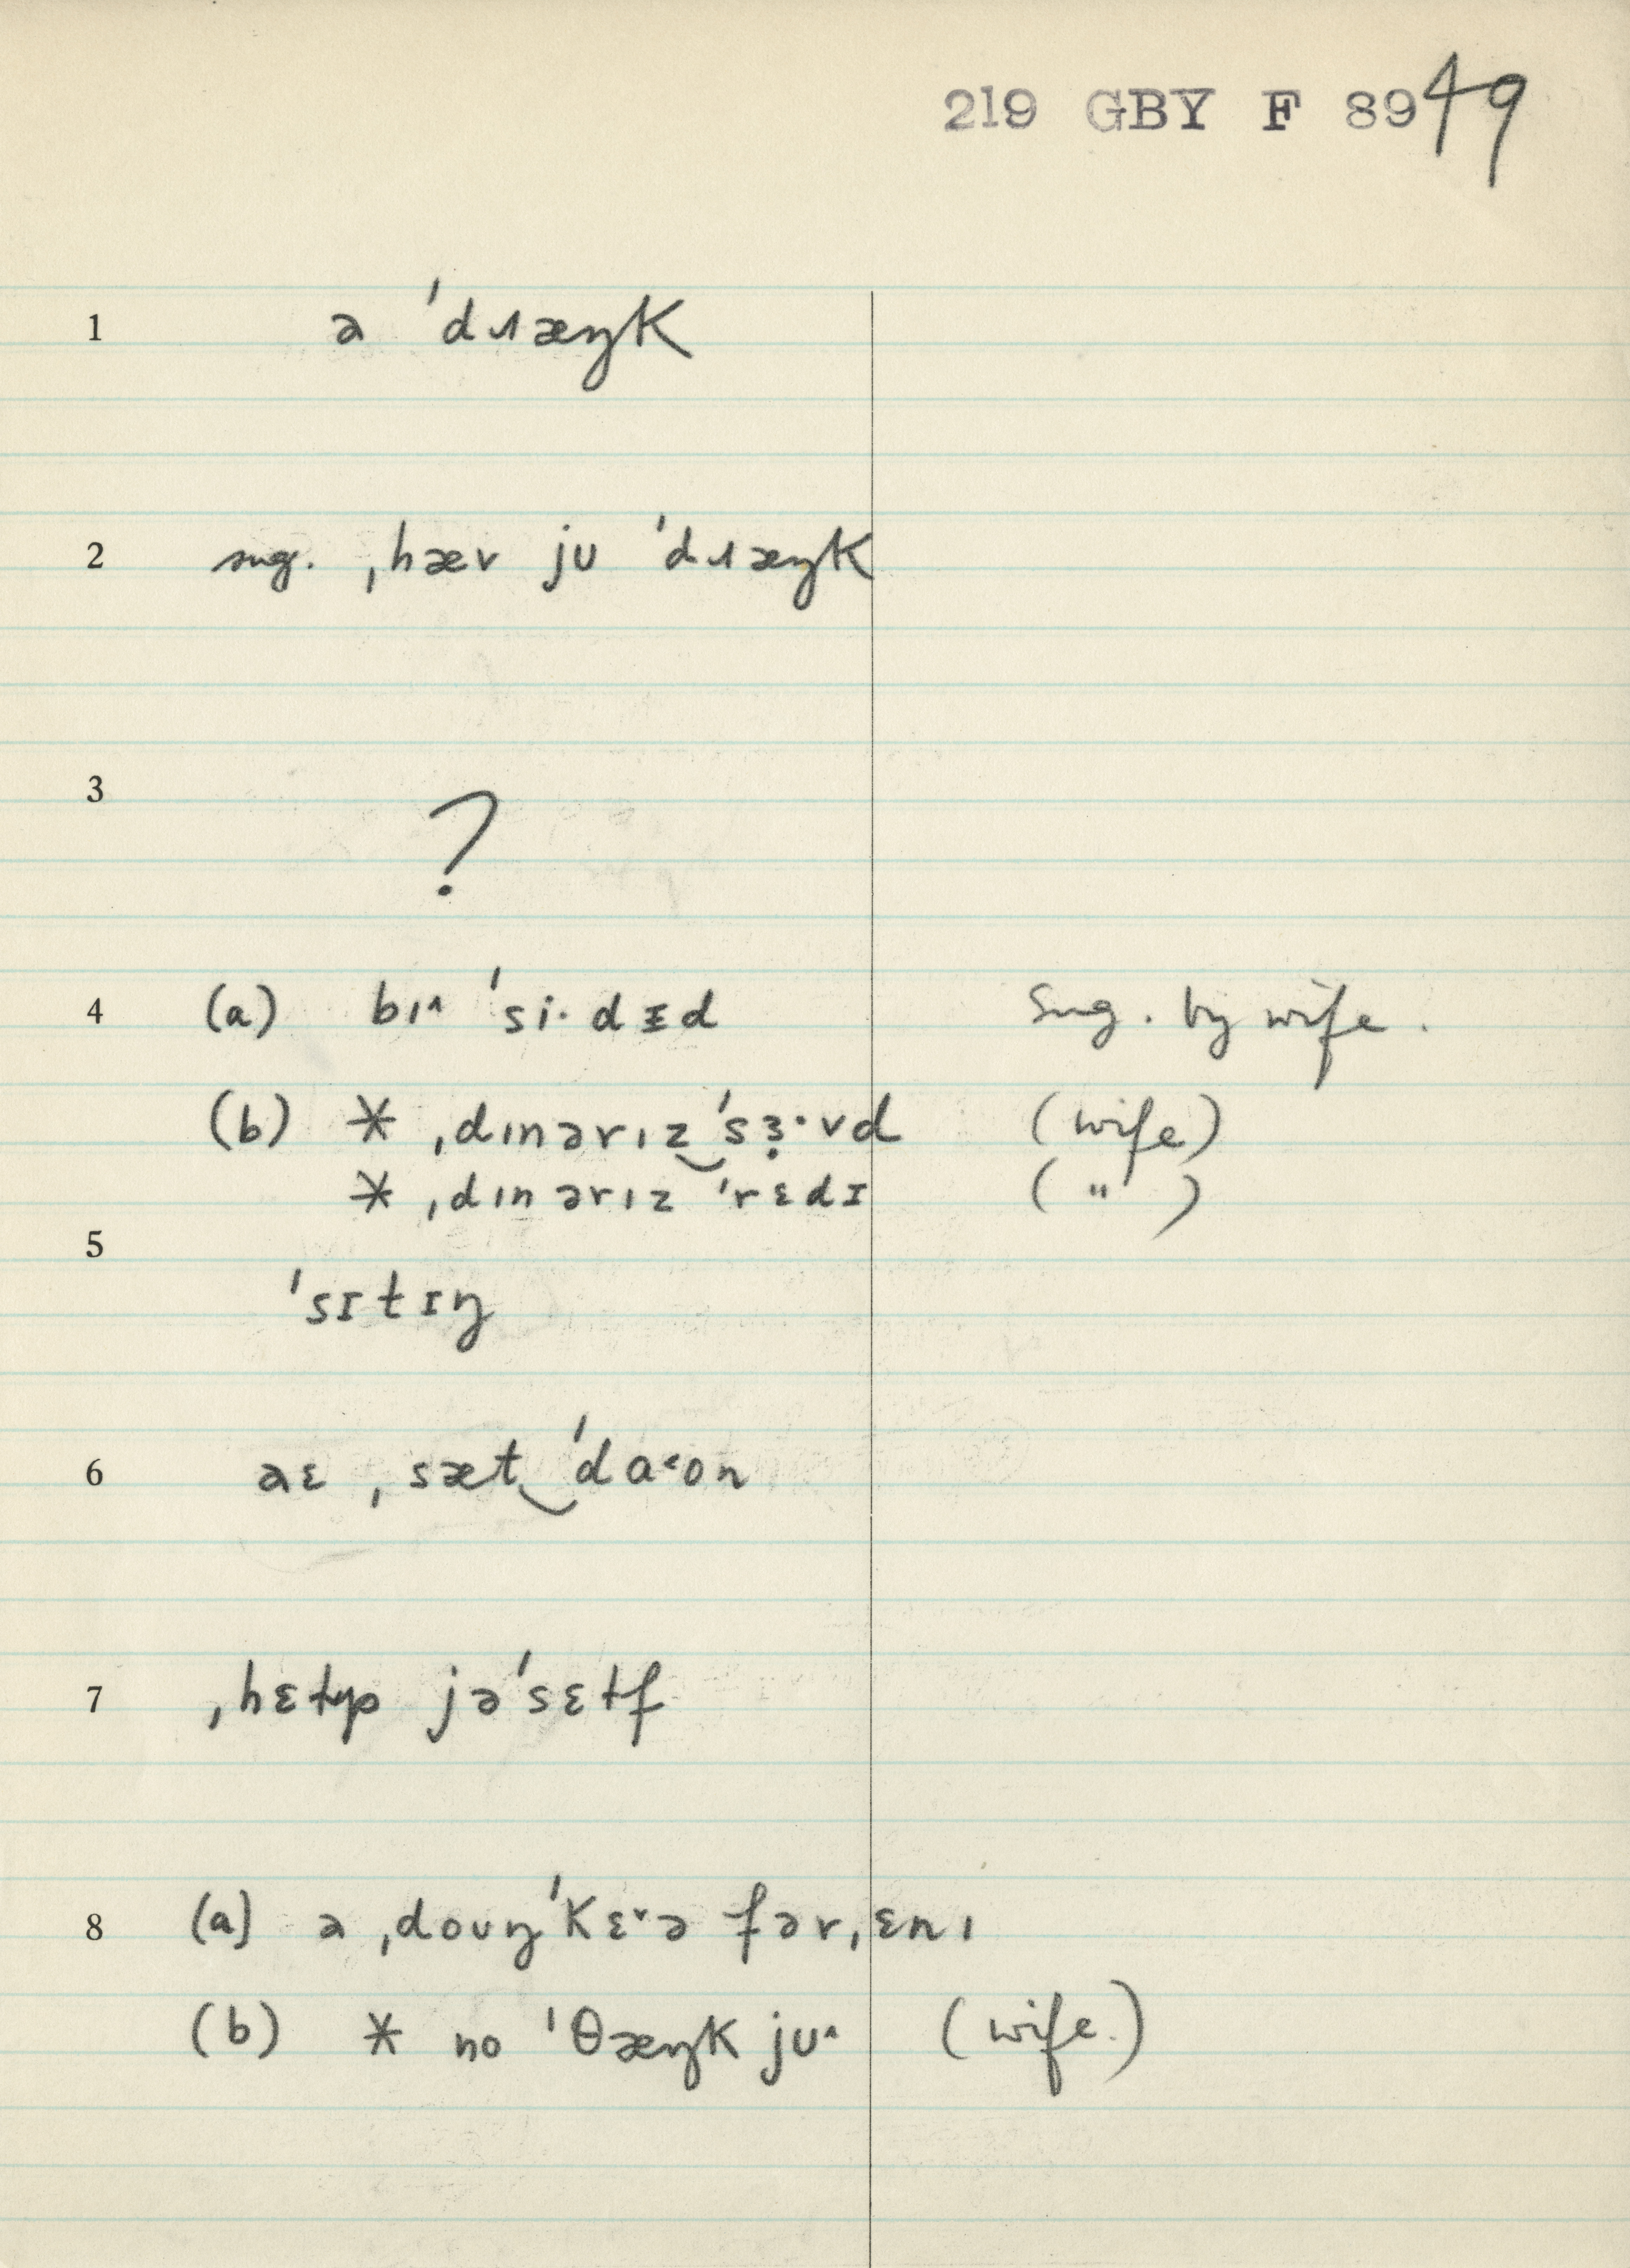 219 GBY F 8949
1 ə ˈdɹæŋk
2 sug. ˌhæv jʊ ˈdɹæŋk
3 ?
4 (a) bɪ˄ ˈsi·dɪd Sug. by wife.
(b) * ˌdɪnərɪz‿ˈsɜ̣·vd (wife)
* ˌdɪnərɪz ˈrɛdɪ ( " )
5 ˈsɪtɪŋ
6 aɛ ˌsæt‿ˈda˂on
7 ˌhɛɫp jəˈsɛɫf
8 (a) ə ˌdoʊŋˈkɛ˅ə fərˌɛnɪ
(b) * no ˈθæŋk jʊ˄ (wife.)